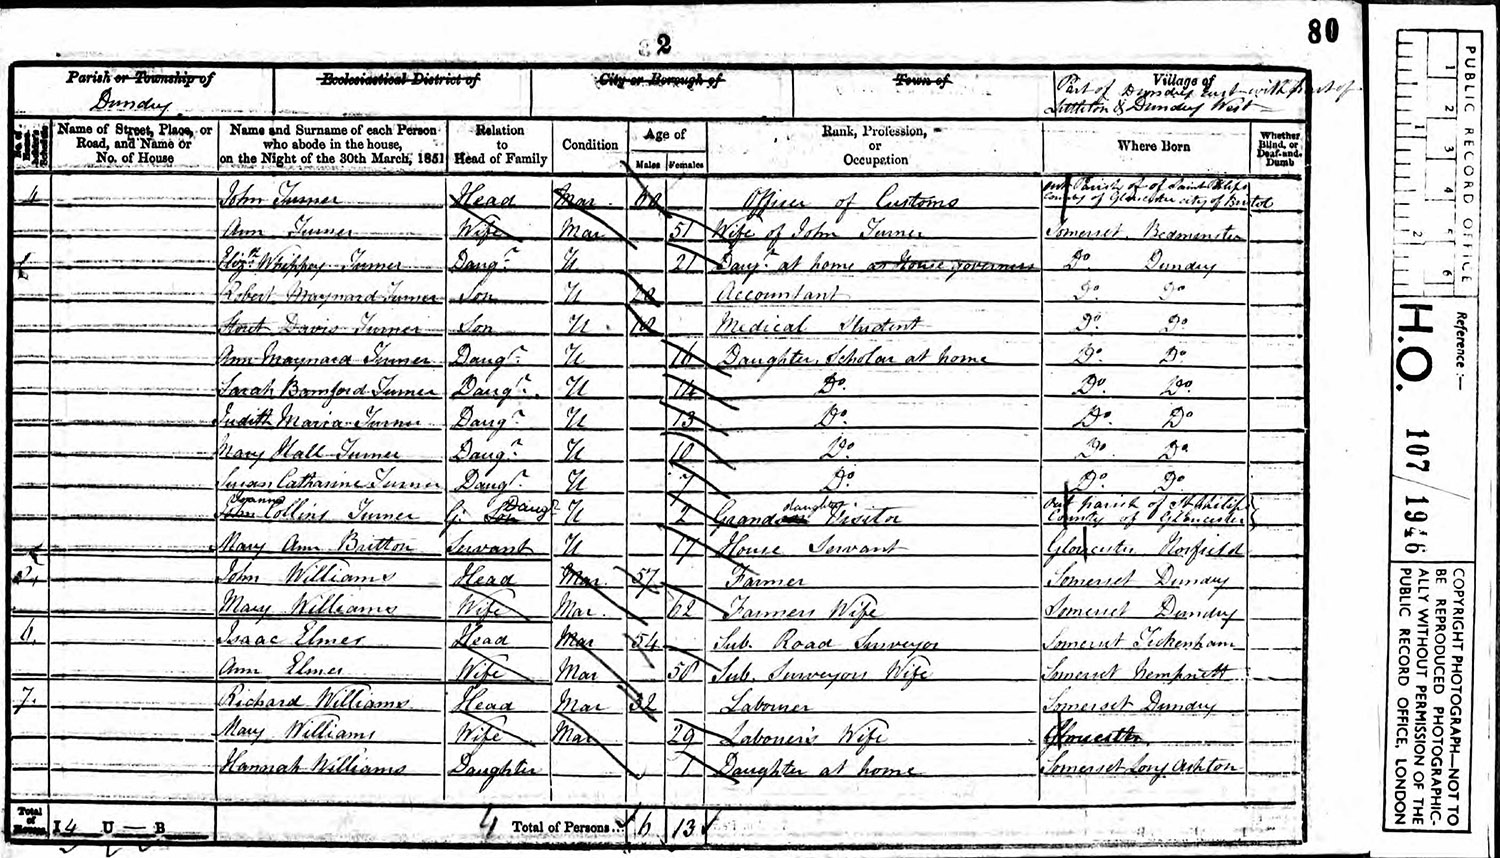 80
2
Parish or Township of
Dundry
Ecclesiastical District of
City or Borough of
Town of
Village of
Part of Dundry East with part of
Littleton & Dundry West
Name of Street, Place, or Road, and Name or No. of House
Name and Surname of each Person who abode in the house, on the Night of the 30th March, 1851
Relation to Head of Family
Condition
Age of
Males Females
Rank, Profession, or Occupation
Where Born
Whether Blind, or Deaf-and-Dumb
4 John Turner Head Mar 60 Officer of Customs Parish of Saint Philips County of Gloucester city of Bristol
Ann Turner Wife Mar 51 Wife of John Turner Somerset Bedminster
Elizth Whippey Turner Daugr U 21 Daugr at home or House governess Do Dundry
Robert Maynard Turner Son U Accountant Do Do
Davis Turner Son U 18 Medical Student Do Do
Ann Maynard Turner Daugr U 16 Daughter Scholar at home Do Do
Sarah Bamford Turner Daugr U 14 Do Do Do
Judith Maria Turner Daugr U 13 Do Do Do
Mary Hall Turner Daugr U 10 Do Do Do
Susan Catharine Turner Daugr U 7 Do Do Do
Collins Turner G Son Daugr U 2 Grandson daughter Visitor out parish of St Philips County of Gloucester
Mary Ann Britton Servant U 17 House Servant Gloucester
John Williams Head Mar 57 Farmer Somerset Dundry
Mary Williams Wife Mar 62 Farmers Wife Somerset Dundry
6 Isaac Elmes Head Mar 54 Sub. Road Surveyor Somerset Tickenham
Ann Elmes Wife Mar 58 Sub. Surveyors Wife Somerset Nempnett
7 Richard Williams Head Mar 32 Labourer Somerset Dundry
Mary Williams Wife Mar 29 Labourer's Wife Gloucester
Hannah Williams Daughter 1 Daughter at home Somerset Long Ashton
Total of Houses I 4 U — B
4 Total of Persons... 6 13
PUBLIC RECORD OFFICE
1 2 3 4 5 6
1 2
Reference:—
H.O. 107/1946
COPYRIGHT PHOTOGRAPH—NOT TO
BE REPRODUCED PHOTOGRAPHIC-
ALLY WITHOUT PERMISSION OF THE
PUBLIC RECORD OFFICE, LONDON